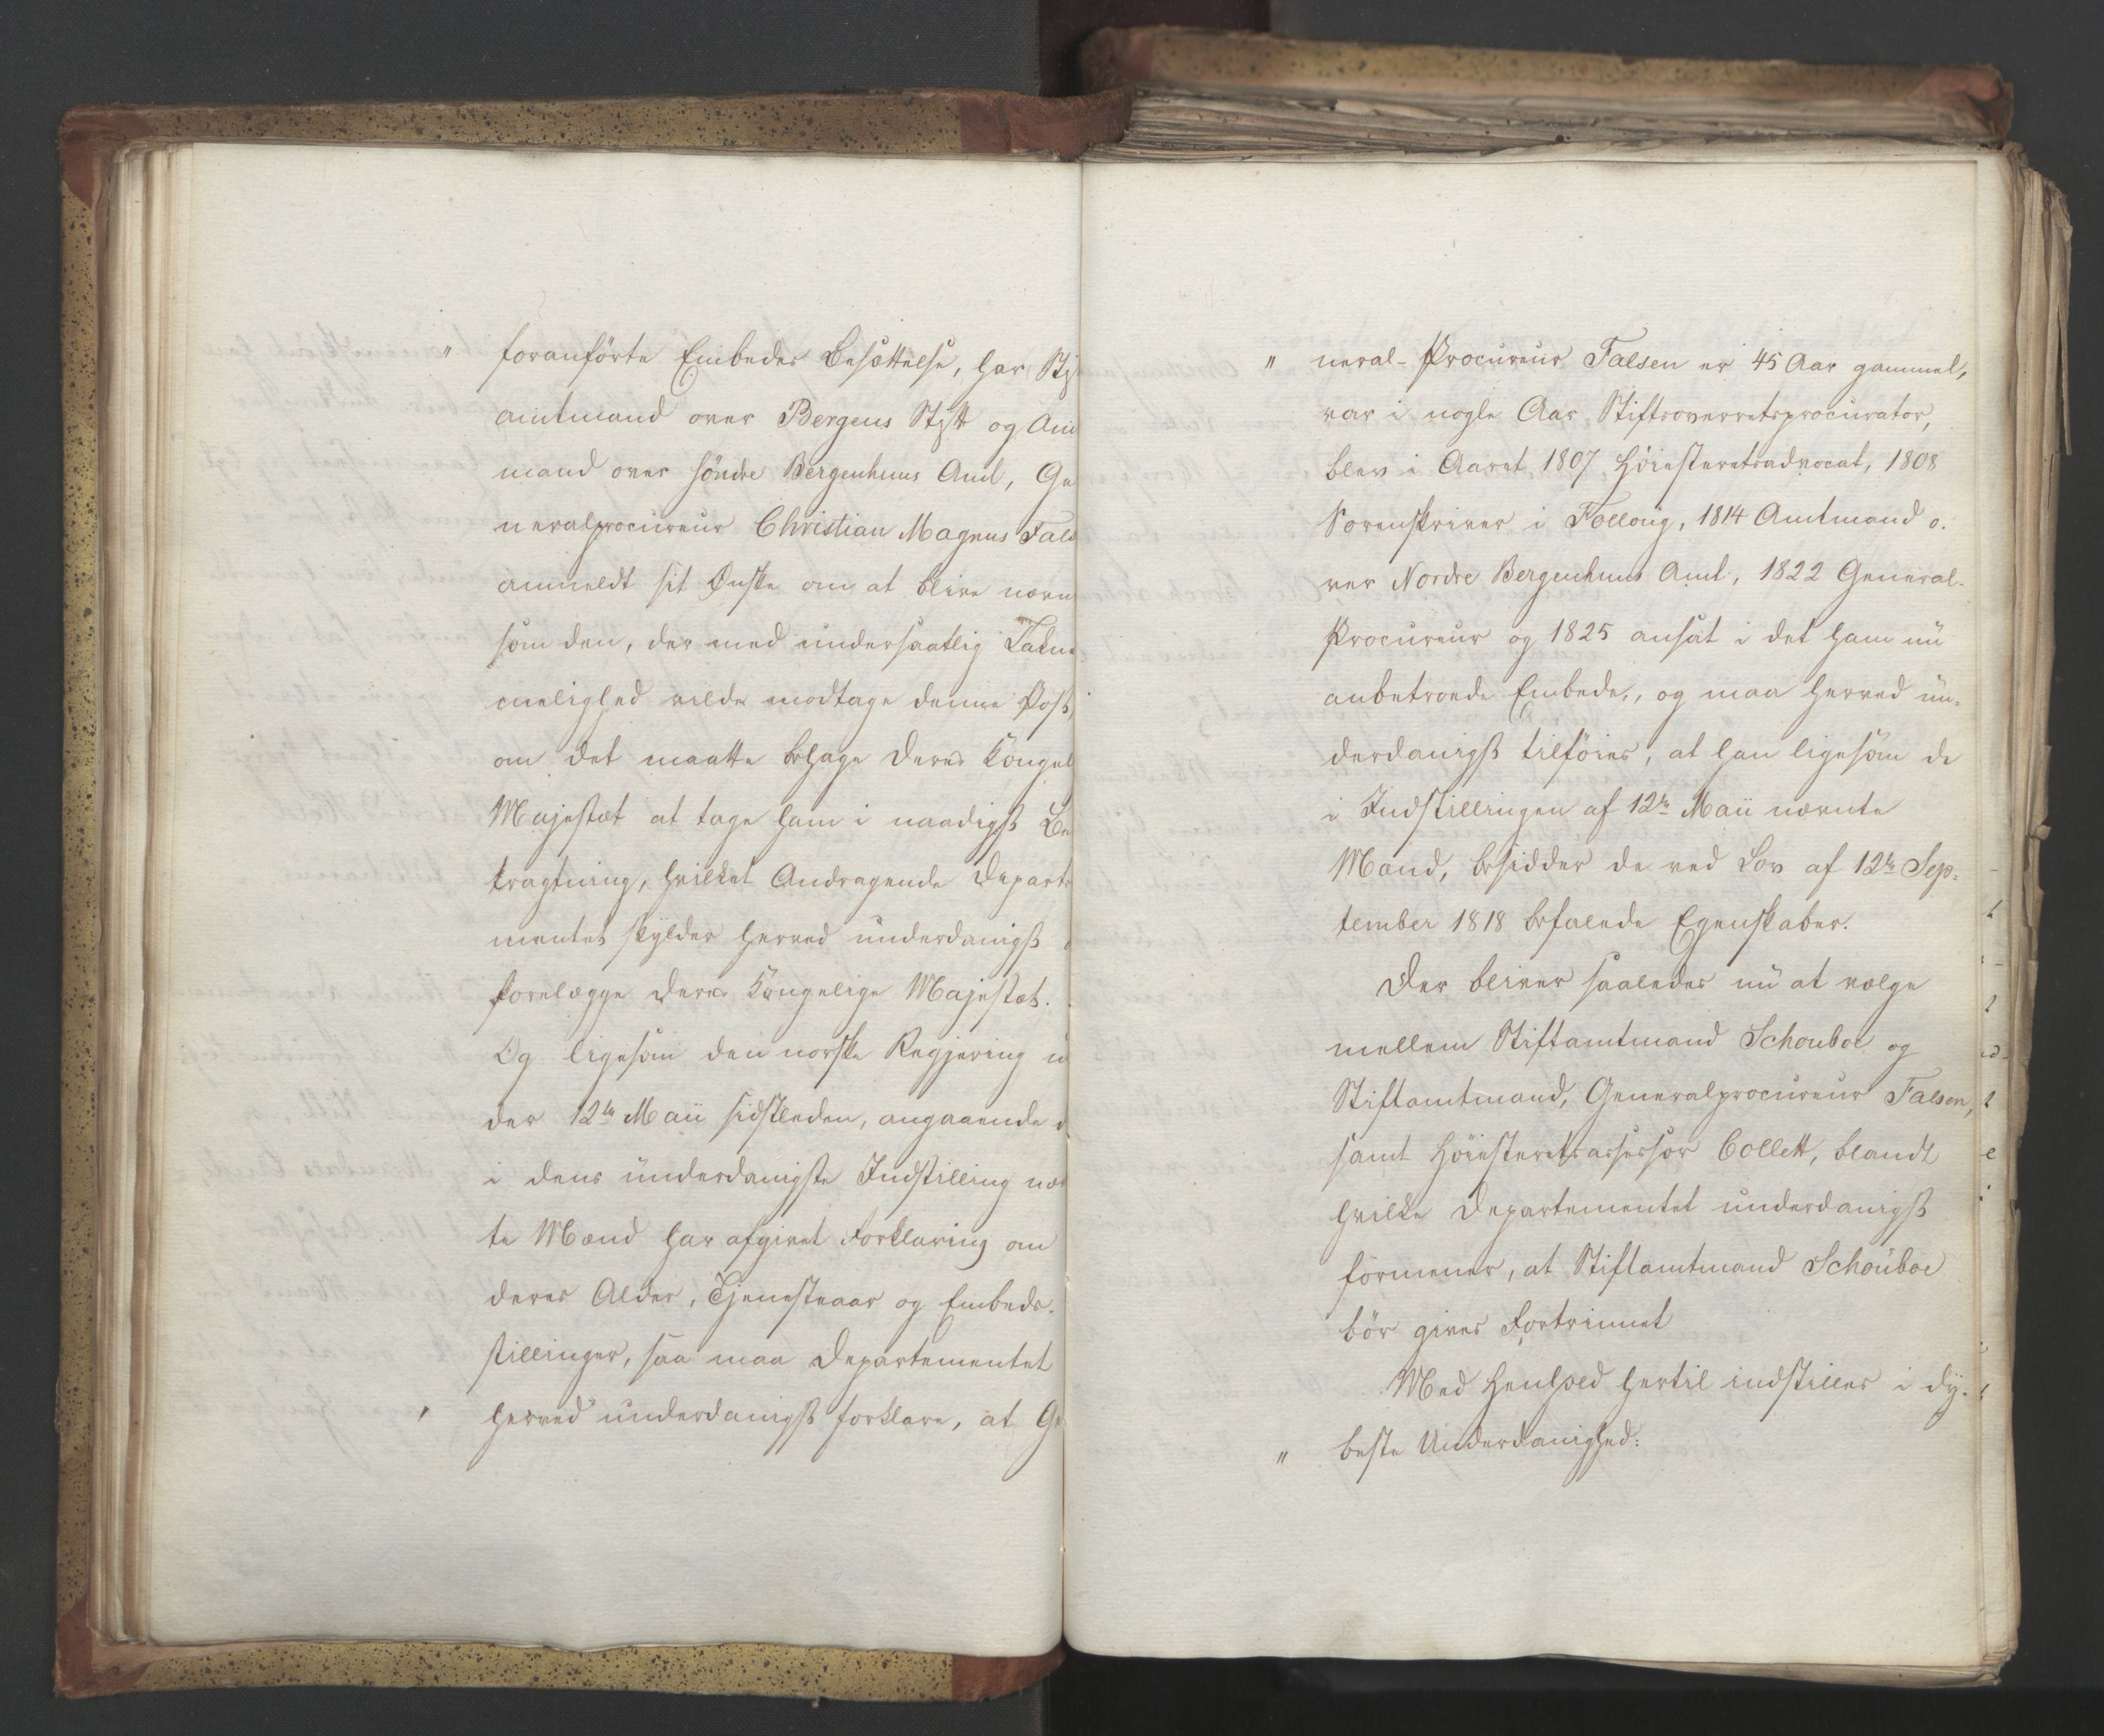 " foranförte Embedes Besættelse, har Stif
amtmand over Bergens Stift og Amt
mand over söndre Bergenhuus Amt, Ge
neralprocureur Christian Magnus Fals
anmeldt sit Ønske om at blive nævn
som den, der med undersaatlig Taknem
melighed vilde modtage denne Post,
om det maatte behage Deres Kongel
Majestæt at tage ham i naadigst Be
tragtning, hvilket Andragende Departe
mentet skylder herved underdanigst
forelægge Deres Kongelige Majestæt.
Og ligesom den norske Regjering u
der 12te Maii sidstleden, angaaende d
i dens underdanigste Indstilling næv
te Mænd har afgivet Forklaring om
deres Alder, Tjenesteaar og Embeds-
stillinger, saa maa Departementet
' herved underdanigst forklare, at Ge
" neral-Procureur Falsen er 45 Aar gammel,
var i nogle Aar Stiftsoverretsprocurator,
blev i Aaret 1807 Höiesteretsadvocat, 1808
Sorenskriver i Folloug, 1814 Amtmand o.
ver Nordre Bergenhuus Amt, 1822 General-
Procureur og 1825 ansat i det ham nu
anbetroede Embede, og maa herved un-
derdanigst tilföies, at han ligesom de
i Indstillingen af 12te Maii nævnte
Mænd, besidder de ved Lov af 12te Sep-
tember 1818 befalede Egenskaber.
Der bliver saaledes nu at vælge
mellem Stiftamtmand Schouboe og
Stiftamtmand, Generalprocureur Falsen,
samt Höiesteretsassessor Collett, blandt
hvilke Departementet underdanigst
formener, at Stiftamtmand Schouboe
bör gives Fortrinnet
Med Henhold hertil indstilles i dy-
" beste Underdanighed: